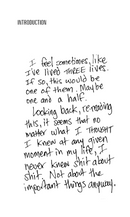 INTRODUCTION
I feel sometimes, like
I've lived THREE lives.
If so, this would be
one of them. Maybe
one and a half.
Looking back, rereading
this, it seems that no
matter what I THOUGHT
I knew at any given
moment in my life, I
never knew shit about
shit. Not about the
important things anyway.